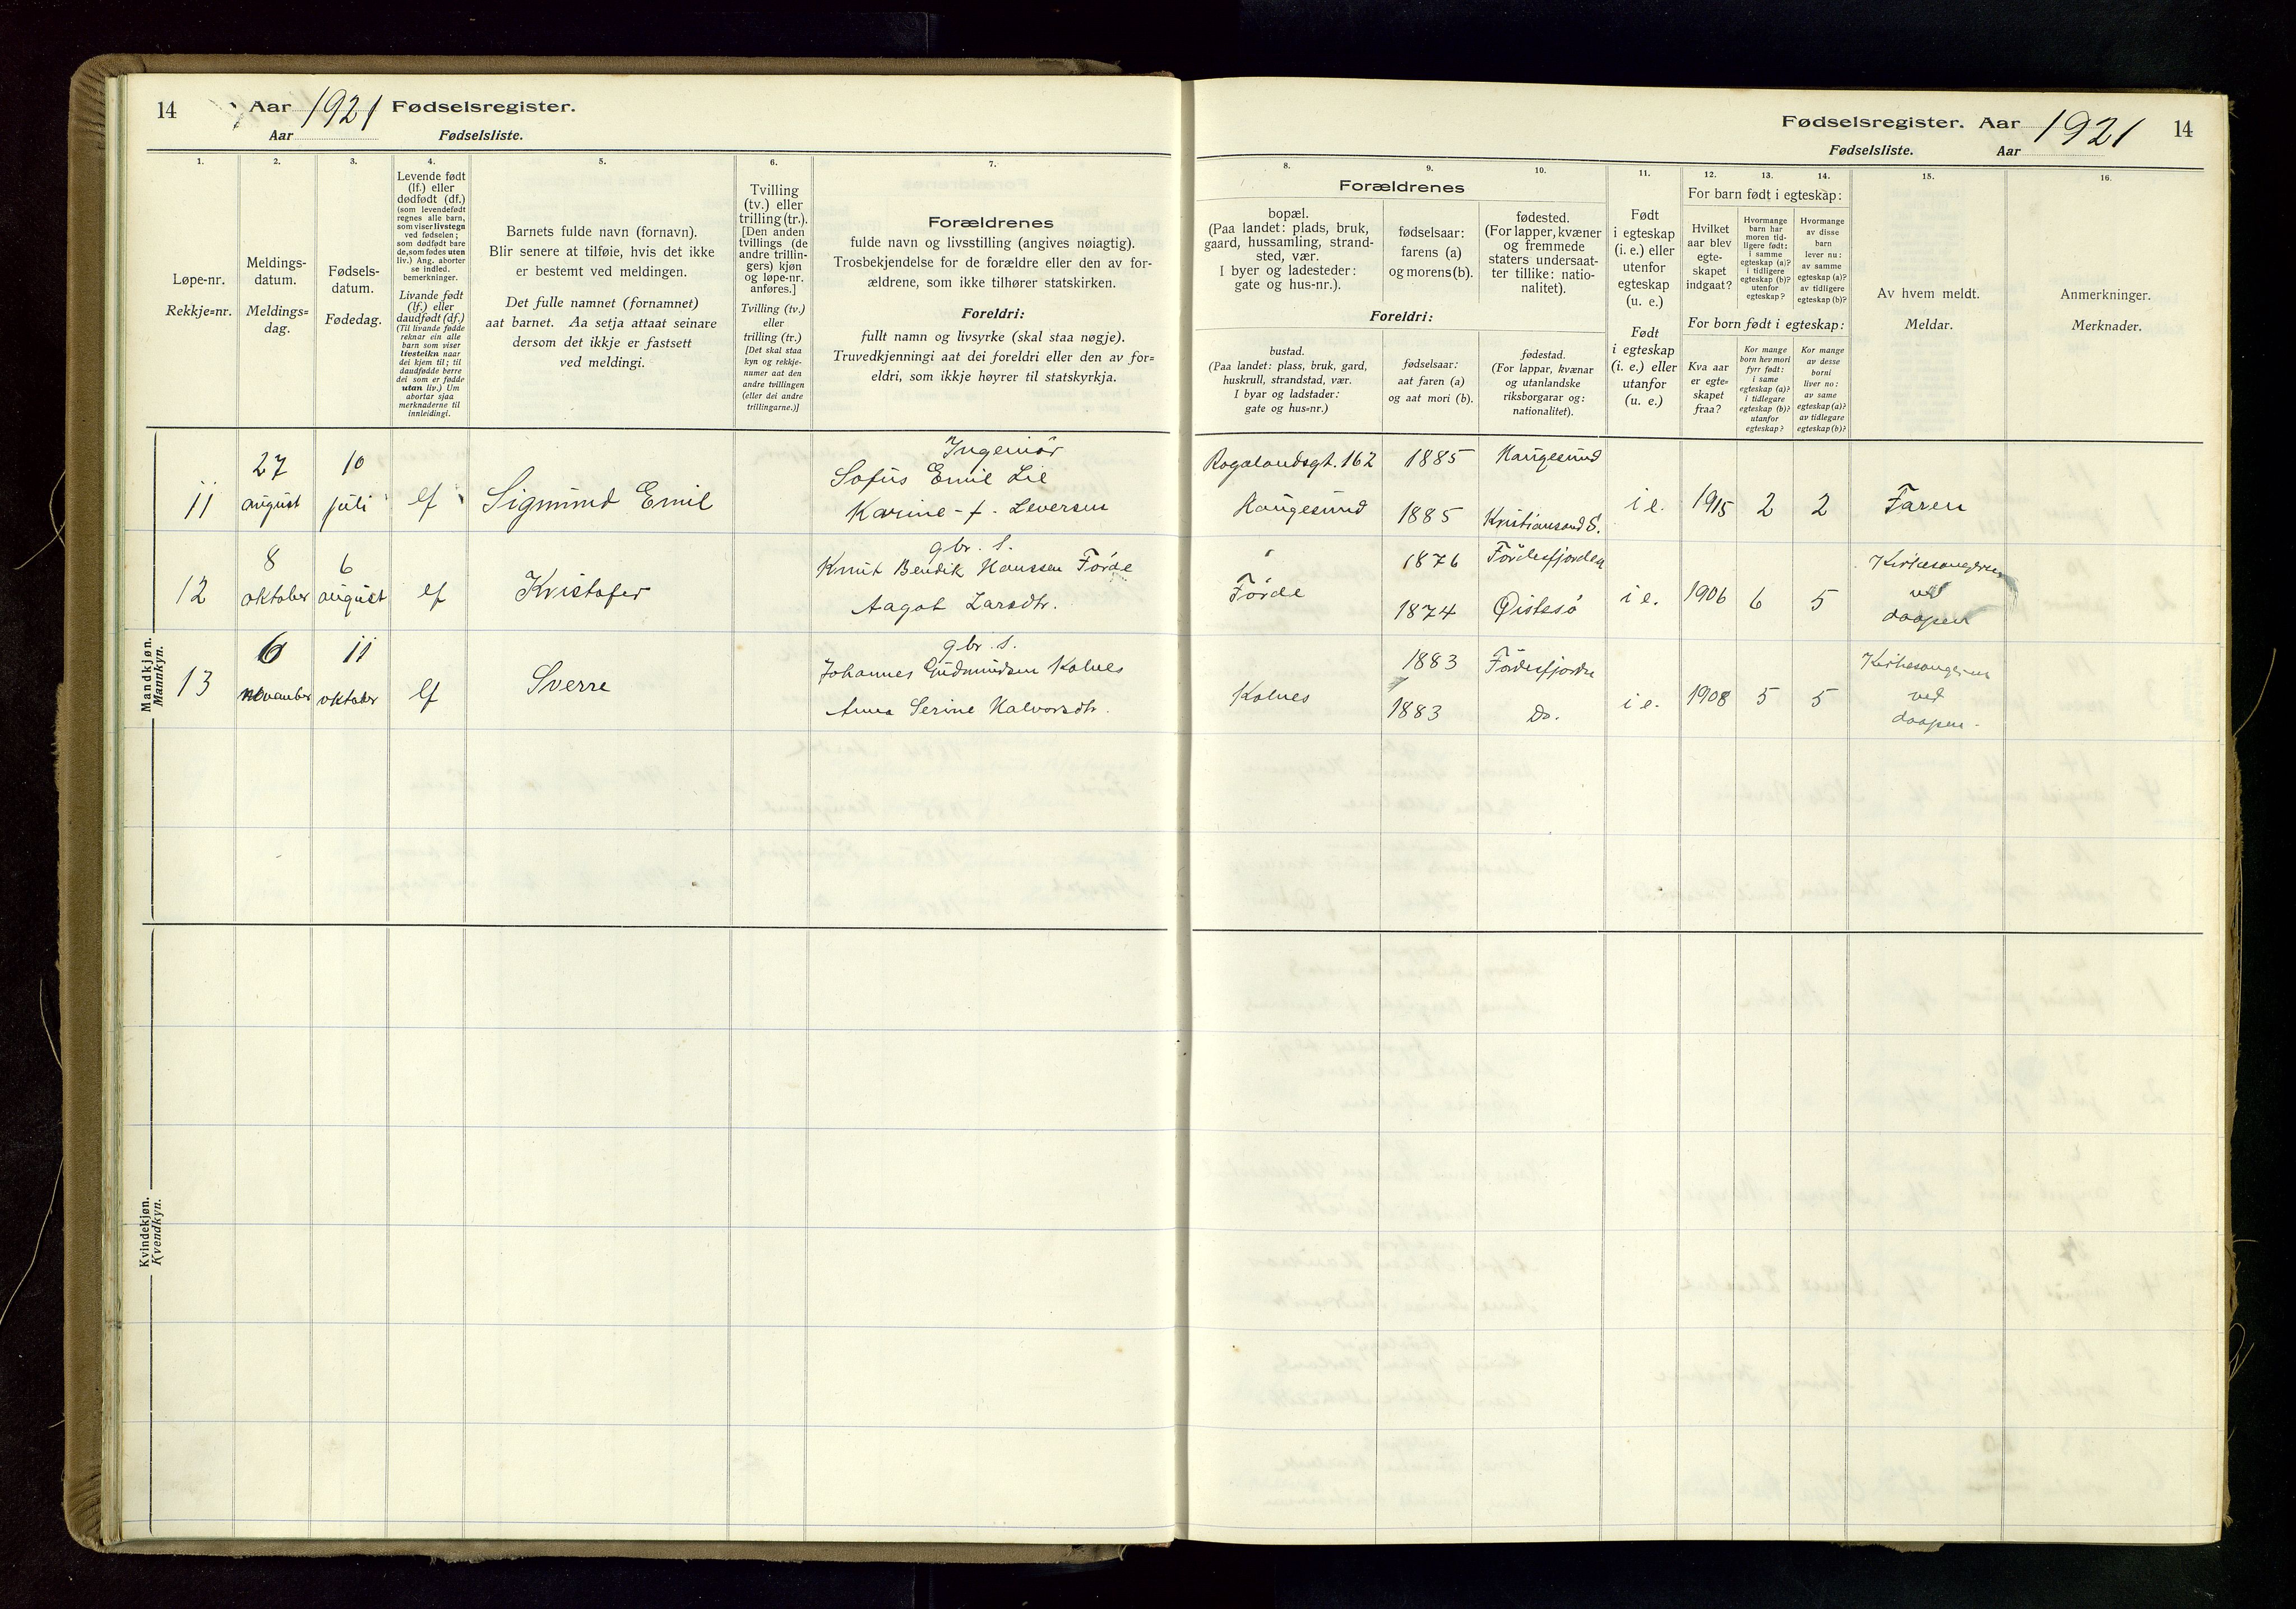 14
Aar 1921 Fødselsregister.
Aar Fødselsliste.
Fødselsregister. Aar 1921
14
Fødselsliste. Aar
1.
2.
3.
4.
5.
6.
7.
8.
9.
10.
11.
12.
13.
14.
15.
16.
Løpe-nr.
Rekkje=nr.
Meldings-
datum.
Meldings=
dag.
Fødsels-
datum.
Fødedag.
Levende født
(lf.) eller
dødfødt (df.)
(som levendefødt
regnes alle barn,
som viser livstegn
ved fødselen;
som dødfødt bare
de, som fødes uten
liv.) Ang. aborter
se indled.
bemerkninger.
Livande født
(lf.) eller
daudfødt (df.)
(Til livande fødde
reknar ein alle
barn som viser
livsteikn naar
dei kjem til; til
daudfødde berre
dei som er fødde
utan liv.) Um
abortar sjaa
merknaderne til
innleidingi.
Barnets fulde navn (fornavn).
Blir senere at tilføie, hvis det ikke
er bestemt ved meldingen.
Det fulle namnet (fornamnet)
aat barnet. Aa setja attaat seinare
dersom det ikkje er fastsett
ved meldingi.
Tvilling
(tv.) eller
trilling (tr.).
[Den anden
tvillings (de
andre trillin-
gers) kjøn
og løpe-nr.
anføres.]
Tvilling (tv.)
eller
trilling (tr.)
[Det skal staa
kyn og rekkje-
numer aat den
andre tvillingen
(eller dei andre
trillingarne.)]
Forældrenes
fulde navn og livsstilling (angives nøiagtig).
Trosbekjendelse for de forældre eller den av for-
ældrene, som ikke tilhører statskirken.
Foreldri:
fullt namn og livsyrke (skal staa nøgje).
Truvedkjenningi aat dei foreldri eller den av for=
eldri, som ikkje høyrer til statskyrkja.
Forældrenes
bopæl.
(Paa landet: plads, bruk,
gaard, hussamling, strand-
sted, vær.
I byer og ladesteder:
gate og hus-nr.).
fødselsaar:
farens (a)
og morens (b).
fødested.
(For lapper, kvæner
og fremmede
staters undersaat-
ter tillike: natio-
nalitet).
Foreldri:
bustad.
(Paa landet: plass, bruk, gard,
huskrull, strandstad, vær.
I byar og ladstader:
gate og hus=nr.)
fødselsaar:
aat faren (a)
og aat mori (b).
fødestad.
(For lappar, kvænar
og utanlandske
riksborgarar og:
nationalitet).
Født
i egteskap
(i. e.) eller
utenfor
egteskap
(u. e.)
Født
i egteskap
(i. e.) eller
utanfor
(u. e.)
For barn født i egteskap:
Hvilket
aar blev
egte-
skapet
indgaat?
Hvormange
barn har
moren tid-
ligere født:
i samme
egteskap (a)?
i tidligere
egteskap (b)?
utenfor
egteskap?
Hvormange
av disse
barn
lever nu:
av samme
egteskap (a)?
av tidligere
egteskap (b)?
For born født i egteskap:
Kva aar
er egte=
skapet
fraa?
Kor mange
born hev mori
fyrr født:
i same
egteskap (a)?
i tidlegare
egteskap (b)?
utanfor
egteskap?
Kor mange
av desse
borni
liver no:
av same
egteskap (a)?
av tidlegare
egteskap (b)?
Av hvem meldt.
Meldar.
Anmerkninger.
Merknader.
Mandkjøn.
Mannkyn.
11
27
august
10
juli
lf
Sigmund Emil
Ingeniør
Sofus Emil Lie
Karine - f. Leversen
Rogalandsgt. 162
Haugesund
1885
1885
Haugesund
Kristiansand S.
i e.
1915
2
2
Faren
12
8
oktober
6
august
lf
Kristofer
gbr. s.
Knut Bendik Hanssen Førde
Aagot Larsdtr.
Førde
1876
1874
Førdesfjorden
Øistesø
i e.
1906
6
5
Kirkesangeren
ved
daapen
13
6
november
11
oktober
lf
Sverre
gbr. s.
Johannes Gudmundsen Kolnes
Anna Serine Halvorsdtr.
Kolnes
1883
1883
Førdesfjorden
Do.
i e.
1908
5
5
Kirkesangeren
ved
daapen.
Kvindekjøn.
Kvendkyn.